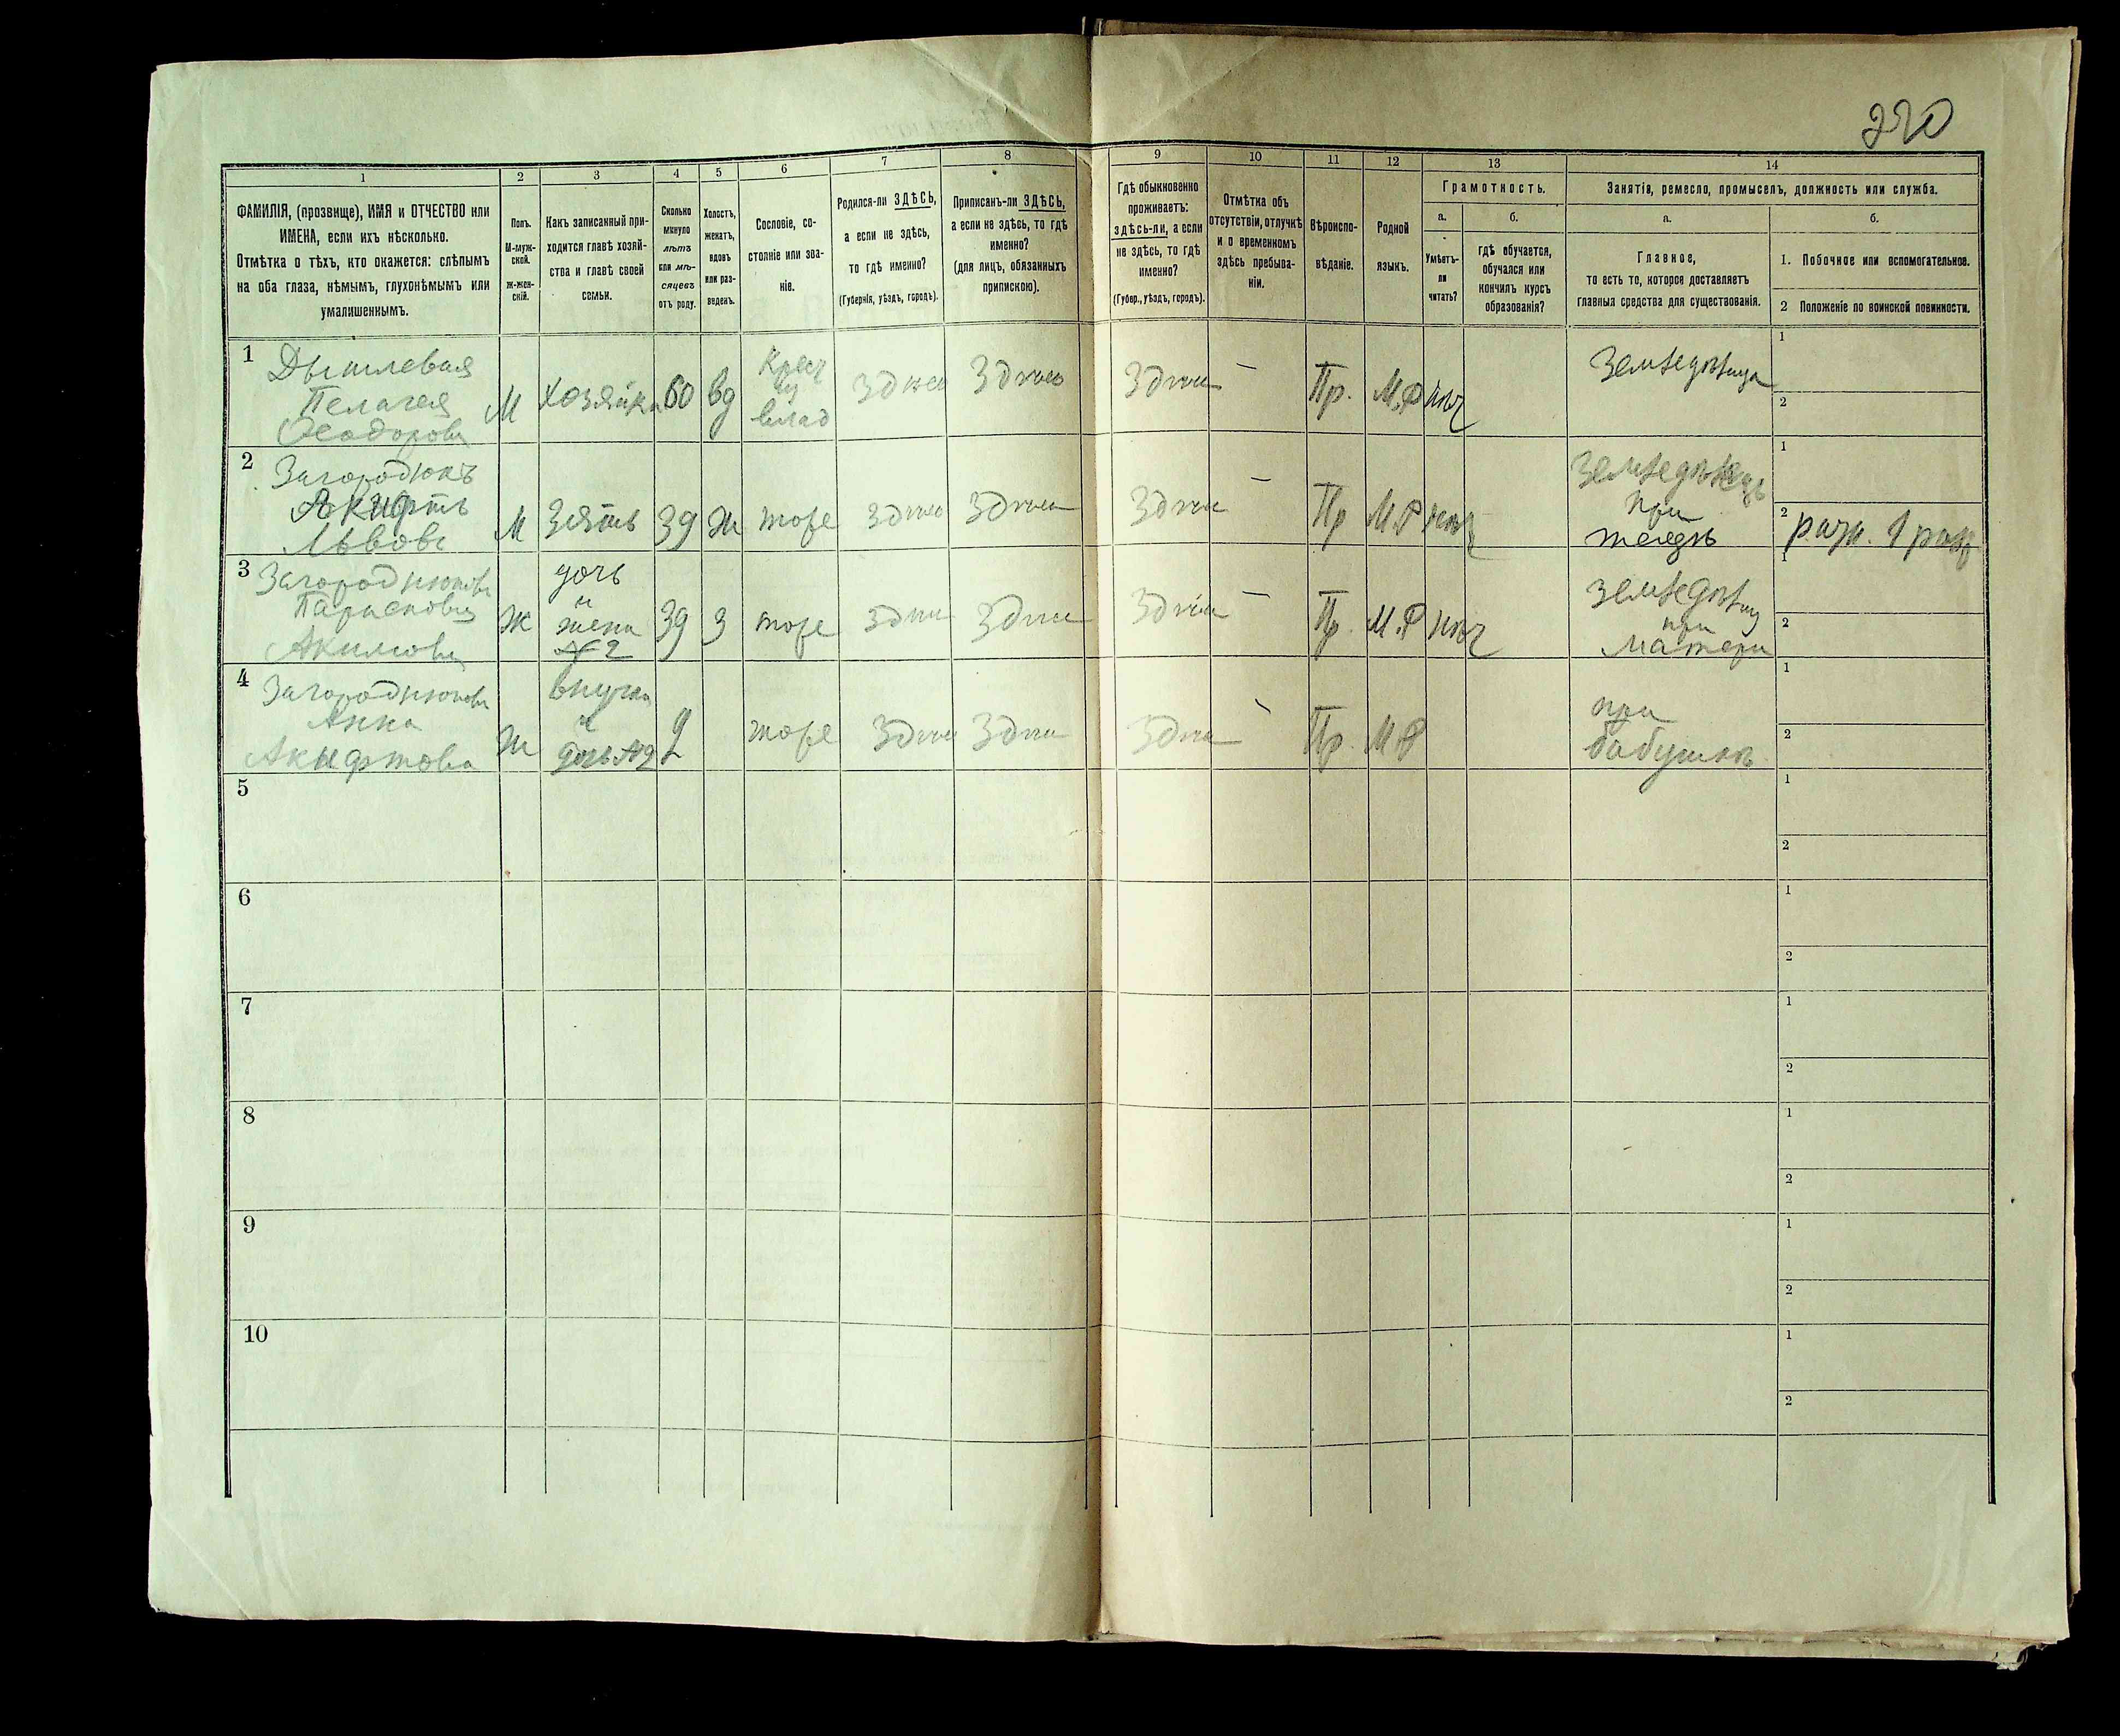 220
1
2
3
4
5
6
7
8
9
10
11
12
13
14
ФАМИЛІЯ, (прозвище), ИМЯ и ОТЧЕСТВО или
ИМЕНА, если ихъ нѣсколько.
Отмѣтка о тѣхъ, кто окажется: слѣпымъ
на оба глаза, нѣмымъ, глухонѣмымъ или
умалишеннымъ.
Полъ.
М-муж-
ской.
Ж-жен-
скій.
Какъ записанный при-
ходится главѣ хозяй-
ства и главѣ своей
семьи.
Сколько
минуло
лѣтъ
или мѣ-
сяцевъ
отъ роду.
Холостъ,
женатъ,
вдовъ
или раз-
веденъ.
Сословіе, со-
стояніе или зва-
ніе.
Родился-ли ЗДѢСЬ,
а если не здѣсь,
то гдѣ именно?
(Губернія, уѣздъ, городъ).
Приписанъ-ли ЗДѢСЬ,
а если не здѣсь, то гдѣ
именно?
(для лицъ, обязанныхъ
припискою).
Гдѣ обыкновенно
проживаетъ:
здѣсь-ли, а если
не здѣсь, то гдѣ
именно?
(Губер., уѣздъ, городъ).
Отмѣтка объ
отсутствіи, отлучкѣ
и о временномъ
здѣсь пребыва-
ніи.
Вѣроиспо-
вѣданіе.
Родной
языкъ.
Грамотность.
а.
Умѣетъ-
ли
читать?
б.
гдѣ обучается,
обучался или
кончилъ курсъ
образованія?
Занятія, ремесло, промыселъ, должность или служба.
а.
Главное,
то есть то, которое доставляетъ
главныя средства для существованія.
б.
1. Побочное или вспомогательное.
2 Положеніе по воинской повинности.
1
Дышлевая
Пелагея
Ѳеодорова
М
Хозяйка
60
вд
Крест
из
влад
Здѣсь
Здѣсь
Здѣсь
—
Пр.
М.Р
нѣт
Земледѣлица
1
2
2
Загороднюкъ
Акифтъ
Львовъ
М
Зять
39
ж
тоже
Здѣсь
Здѣсь
Здѣсь
—
Пр
М.Р
нѣт
Земледѣлецъ
при
тещѣ
1
2
ратн. 1 разр
3
Загороднюкова
Акимова
Ж
дочь
и
жена
№ 2
39
З
тоже
Здѣсь
Здѣсь
Здѣсь
—
Пр.
М.Р
нѣт
Земледѣлица
при
матери
1
2
4
Загороднюкова
Анна
Акифтова
Ж
внучка
и
дочь №2
2
тоже
Здѣсь
Здѣсь
Здѣсь
-
Пр.
М.Р
при
бабушкѣ
1
2
5
1
2
6
1
2
7
1
2
8
1
2
9
1
2
10
1
2